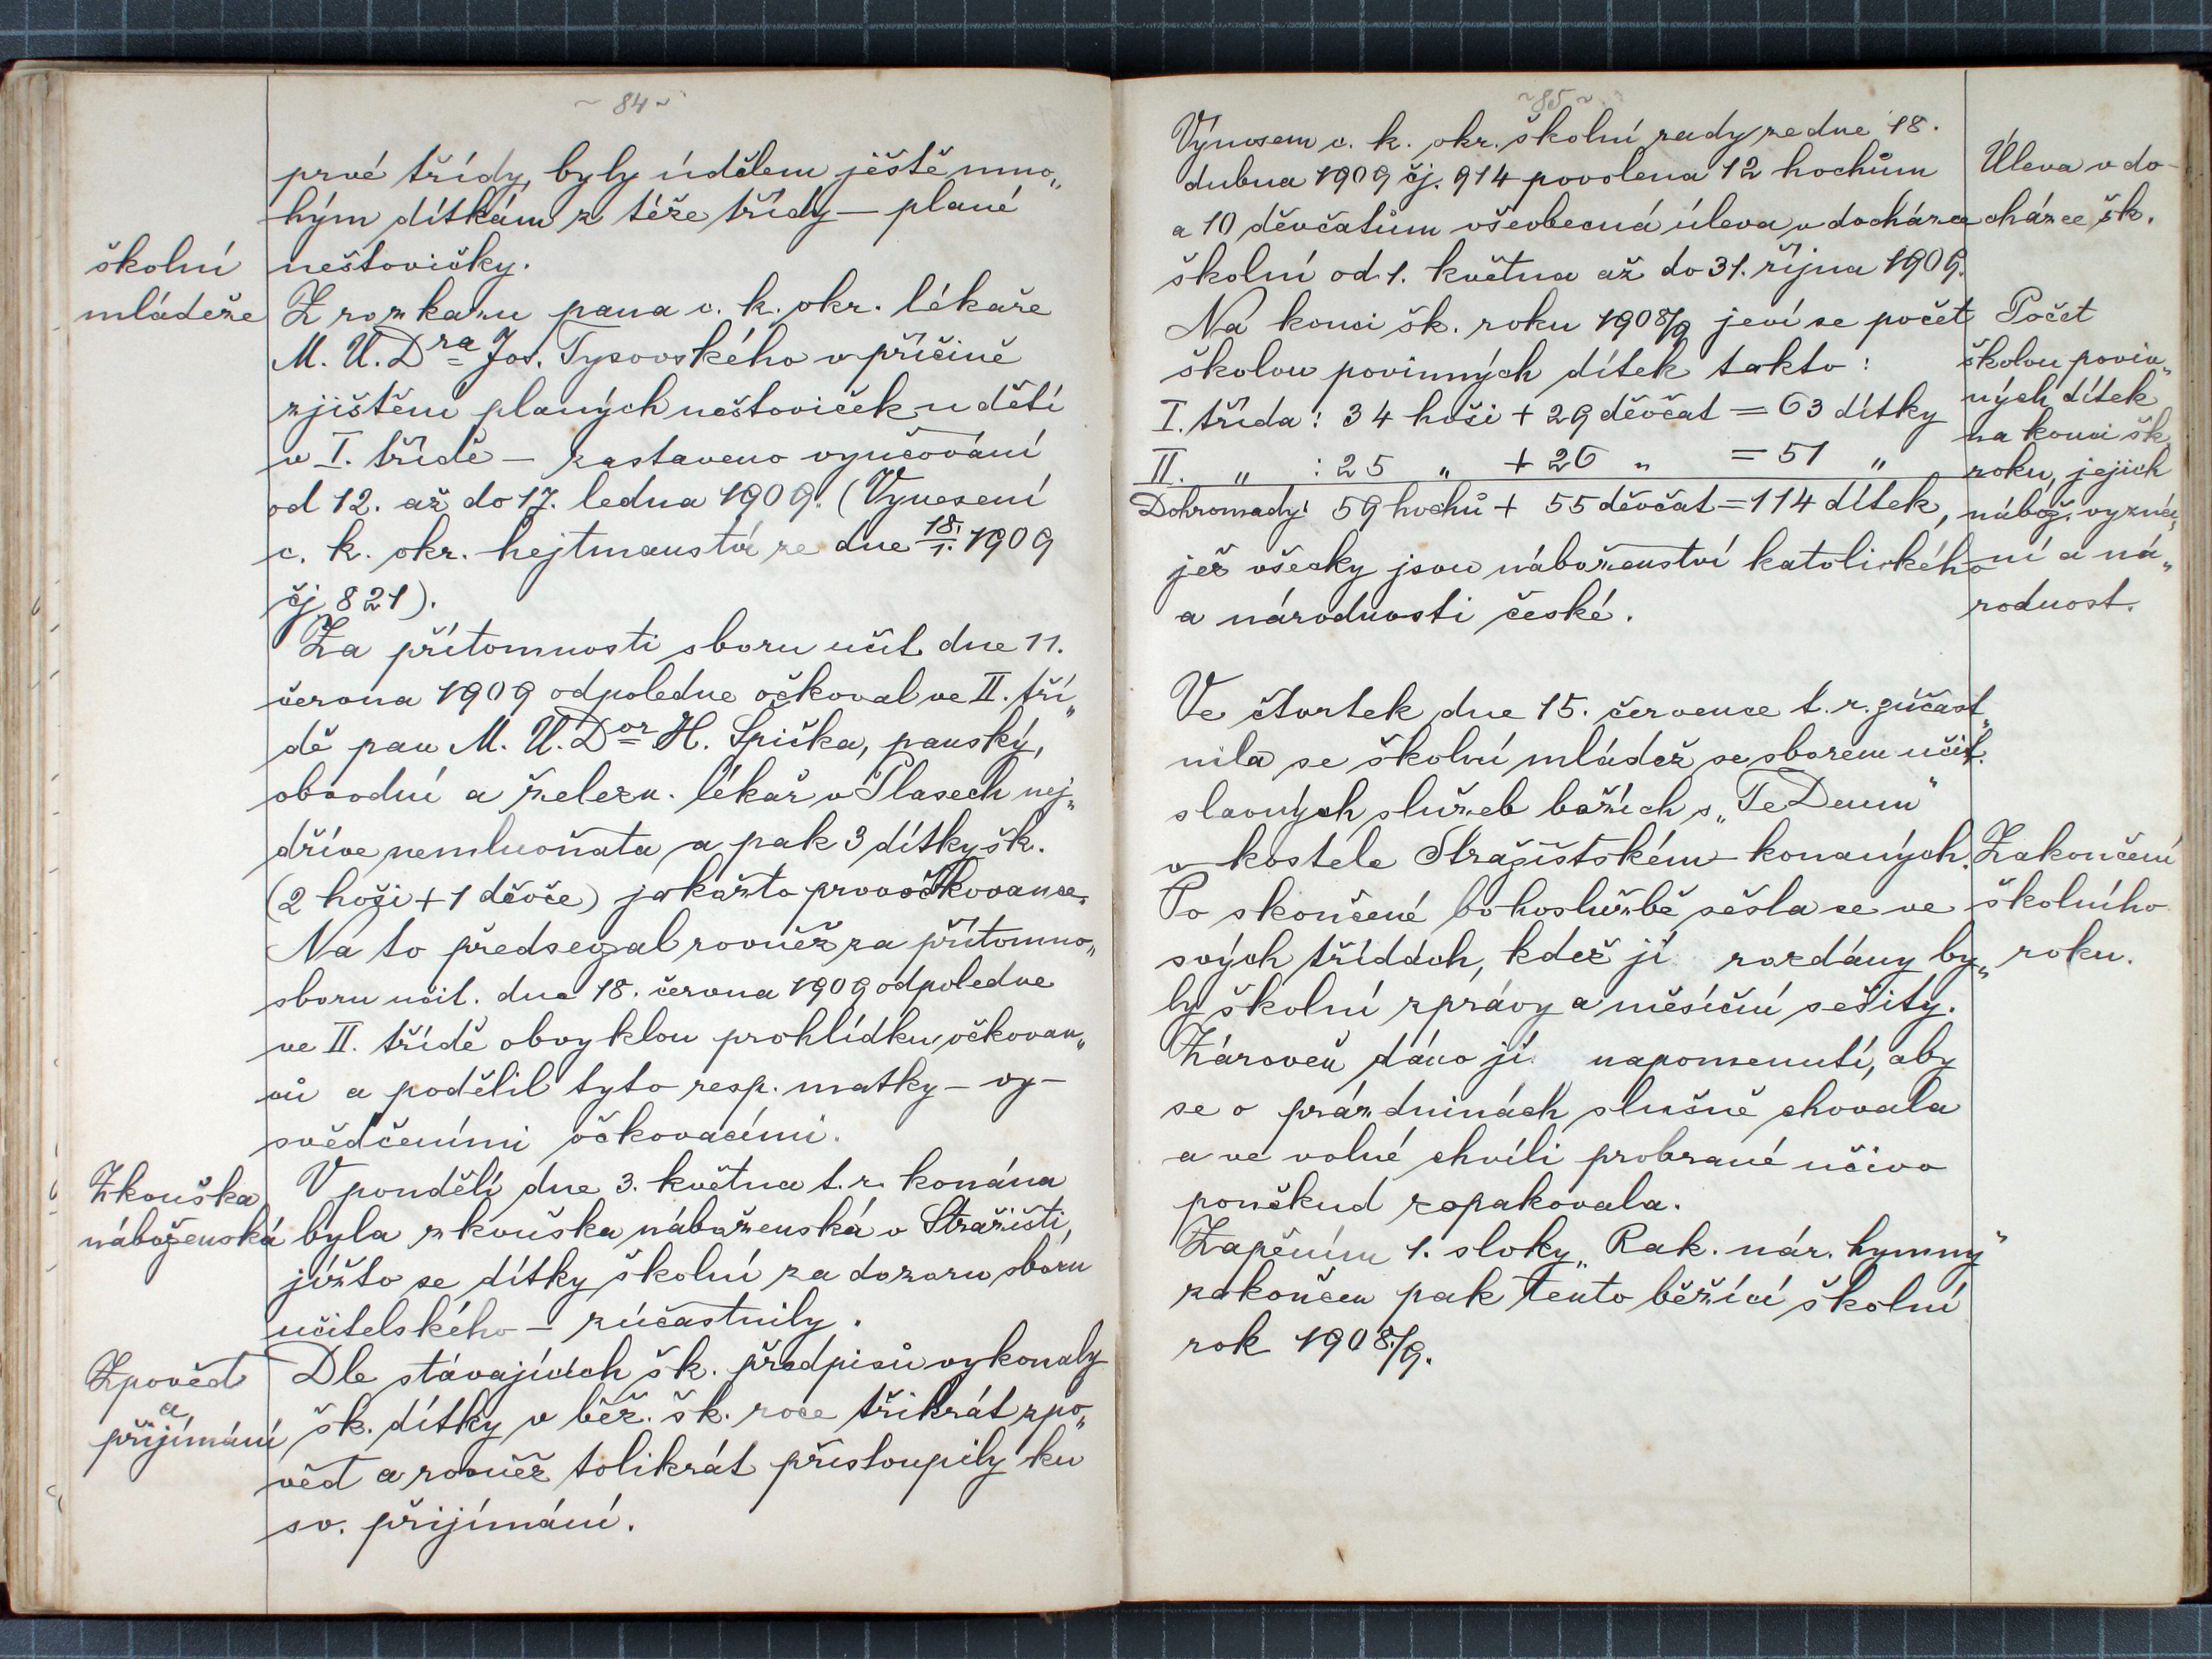 ~ 84 ~
prvé třídy, byly údělem ještě mno„
hým dítkám z téže třídy — plané
školní
mládeže
neštovičky.
Z rozkazu pana c. k. okr. lékaře
M. U. Dra Jos. Tysovského v příčině
zjištění planých neštoviček u dětí
v I. třídě — zastaveno vyučování
od 12. až do 17. ledna 1909. (Vynesení
c. k. okr. hejtmanství ze dne 18./1. 1909
čj 821).
Za přítomnosti sboru učit. dne 11.
června 1909 odpoledne očkoval ve II. tří„
dě pan M. U. Dor H. Spička, panský,
obvodní a železn. lékař v Plasech nej„
dříve nemluvňata a pak 3 dítky šk.
(2 hoši + 1 děvče) jakožto prvoočkovance.
Na to předsevzal rovněž za přítomno„
sboru učit. dne 18. června 1909 odpoledne
ve II. třídě obvyklou prohlídku očkovan„
ců a podělil tyto resp. matky — vy-
svědčeními očkovacími.
Zkouška
náboženská
V pondělí dne 3. května t. r. konána
byla zkouška náboženská v Stražišti,
jížto se dítky školní za dozoru sboru
učitelského — zúčastnily.
Zpověď
a
přijímání
Dle stávajících šk. předpisů vykonaly
šk. dítky v běž. šk. roce třikrát zpo„
věď a rovněž tolikrát přistoupily ku
sv. přijímání.
~ 85 ~
Výnosem c. k. okr. školní rady ze dne 18.
dubna 1909 čj. 914 povolena 12 hochům
a 10 děvčatům všeobecná úleva v docházce
školní od 1. května až do 31. října 1909.
Úleva v do-
cházce šk.
Na konci šk. roku 1908/9 jeví se počet
školou povinných dítek takto:
I. třída: 34 hoši + 29 děvčat = 63 dítky
II. „ : 25 „ + 26 „ = 51 „
Dohromady: 59 hochů + 55 děvčat = 114 dítek,
jež všecky jsou náboženství katolického
a národnosti české.
Počet
školou povin„
ných dítek
na konci šk.
roku, jejich
nábož. vyzná„
ní a ná„
rodnost.
Ve čtvrtek dne 15. července t. r. zúčast„
nila se školní mládež se sborem učit.
slavných služeb božích s „Te Deum“
v kostele Stražištském — konaných.
Po skončené bohoslužbě sešla se ve
svých třídách, kdež jí rozdány by„
ly školní zprávy a měsíční sešity.
Zároveň dáno jí napomenutí, aby
se o prázdninách slušně chovala
a ve volné chvíli probrané učivo
poněkud zopakovala.
Zapěním 1. sloky „Rak. nár. hymny“
zakončen pak tento běžící školní
rok 1908/9.
Zakončení
školního
roku.